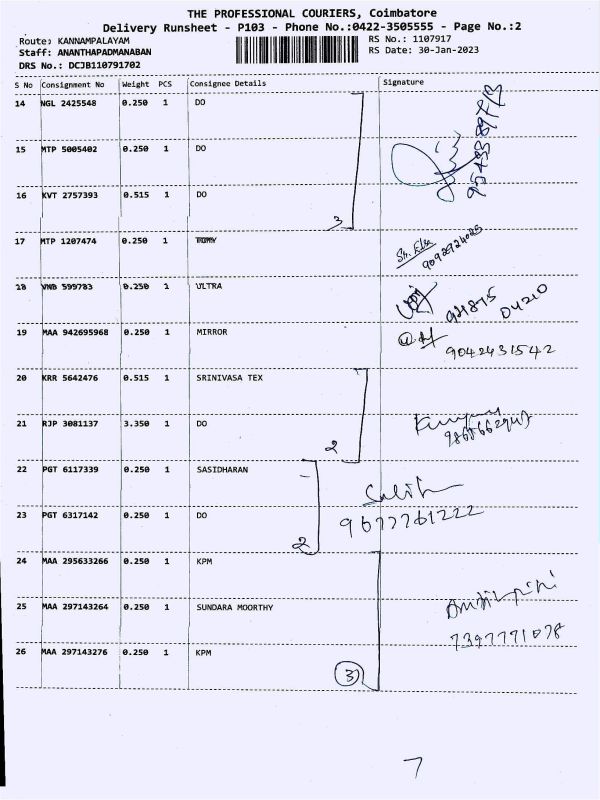 THE PROFESSIONAL COURIERS, Coimbatore
Delivery Runsheet - P103 - Phone No.:0422-3505555 - Page No.:2
Route: KANNAMPALAYAM RS No.: 1107917
Staff: ANANTHAPADMANABAN RS Date: 30-Jan-2023
DRS No.: DCJB110791702
S No Consignment No Weight PCS Consignee Details Signature
14 NGL 2425548 0.250 1 DO
15 MTP 5005402 0.250 1 DO
16 KVT 2757393 0.515 1 DO
3
17 MTP 1207474 0.250 1 TOMY
18 VNB 599783 0.250 1 ULTRA
19 MAA 942695968 0.250 1 MIRROR
9042431542
20 KRR 5642476 0.515 1 SRINIVASA TEX
21 RJP 3081137 3.350 1 DO
2
22 PGT 6117339 0.250 1 SASIDHARAN
23 PGT 6317142 0.250 1 DO
9677761222
2
24 MAA 295633266 0.250 1 KPM
25 MAA 297143264 0.250 1 SUNDARA MOORTHY
7397771078
26 MAA 297143276 0.250 1 KPM
3
7